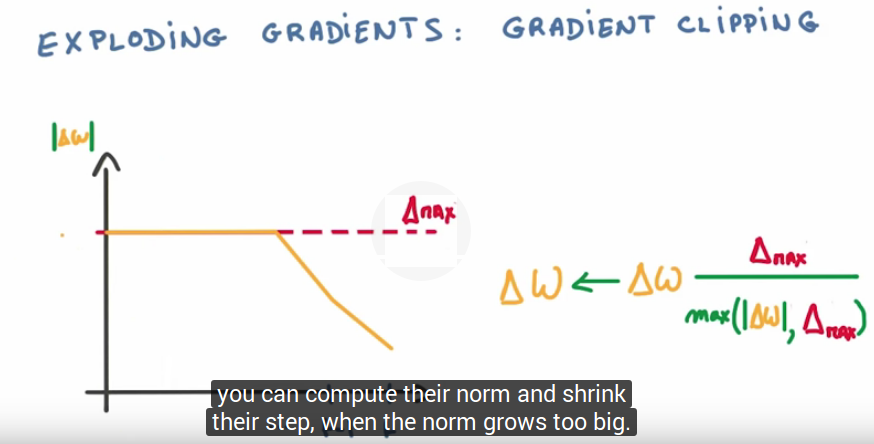 EXPLODING GRADIENTS: GRADIENT CLIPPING
|Δω|
Δmax
Δω ← Δω Δmax / max(|Δω|, Δmax)
you can compute their norm and shrink
their step, when the norm grows too big.